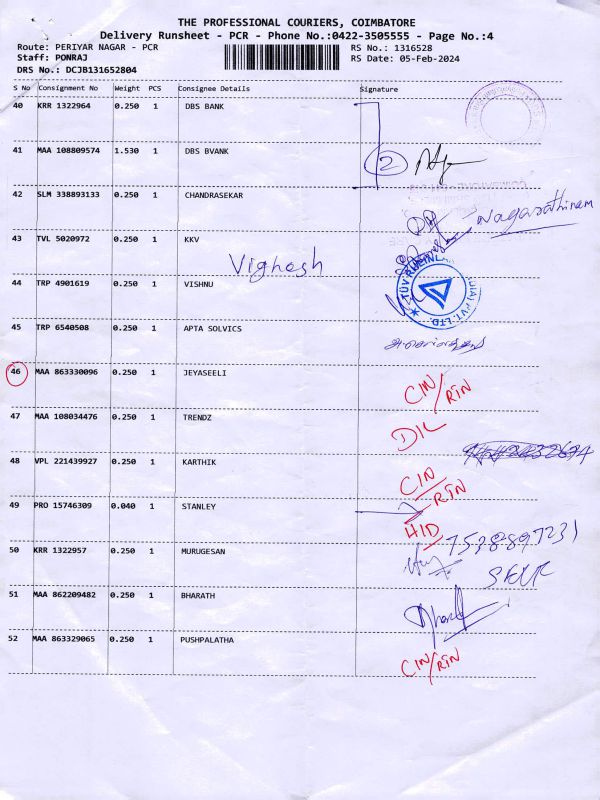 THE PROFESSIONAL COURIERS, COIMBATORE
Delivery Runsheet - PCR - Phone No.:0422-3505555 - Page No.:4
Route: PERIYAR NAGAR - PCR RS No.: 1316528
Staff: PONRAJ RS Date: 05-Feb-2024
DRS No.: DCJB131652804
S No Consignment No Weight PCS Consignee Details Signature
40 KRR 1322964 0.250 1 DBS BANK
41 MAA 108809574 1.530 1 DBS BVANK 2
42 SLM 338893133 0.250 1 CHANDRASEKAR
Nagarathinam
43 TVL 5020972 0.250 1 KKV
Vighesh
44 TRP 4901619 0.250 1 VISHNU
TÜV RHEINLAND PVT. LTD.
45 TRP 6540508 0.250 1 APTA SOLVICS
46 MAA 863330096 0.250 1 JEYASEELI CIN/RTN
47 MAA 108034476 0.250 1 TRENDZ DIL
48 VPL 221439927 0.250 1 KARTHIK CIN/RTN
49 PRO 15746309 0.040 1 STANLEY HID
7538897231
50 KRR 1322957 0.250 1 MURUGESAN
51 MAA 862209482 0.250 1 BHARATH Bharath
52 MAA 863329065 0.250 1 PUSHPALATHA CIN/RTN